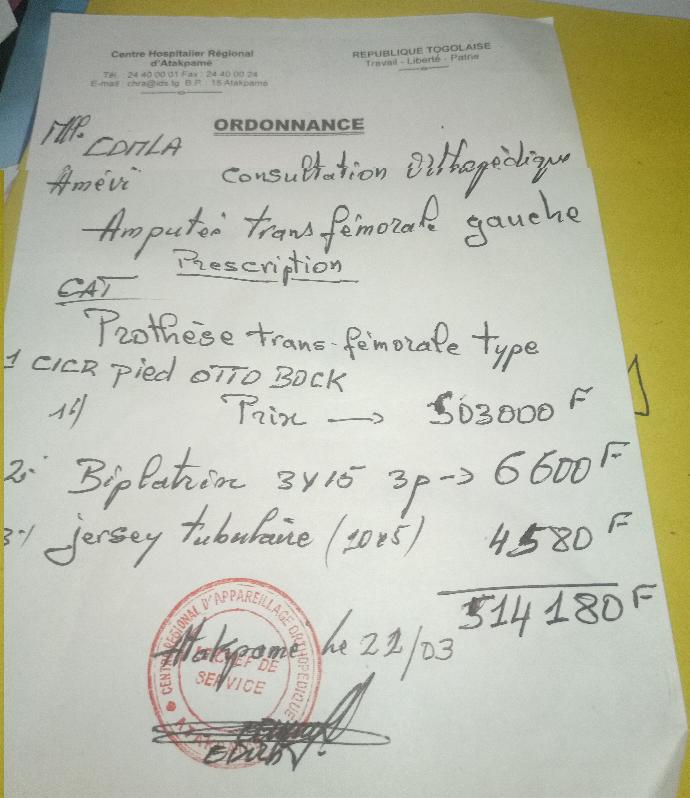 Centre Hospitalier Régional
d'Atakpamé
Tél : 24 40 00 01 Fax : 24 40 00 24
E-mail : chra@ids.tg B.P. : 15 Atakpamé
REPUBLIQUE TOGOLAISE
Travail - Liberté - Patrie
ORDONNANCE
Mr. EDMLA
Amévi
Consultation Orthopédique
Amputé trans fémorale gauche
Prescription
CAT
Prothèse trans-fémorale type
1 CICR pied OTTO BOCK
1°/ Prix → 503000 F
2- Biplatrix 3x15 3p → 6600 F
3°/ jersey tubulaire (10x5) 4580 F
514180 F
Atakpamé le 22/03
CENTRE REGIONAL D'APPAREILLAGE ORTHOPEDIQUE
CHEF DE
SERVICE